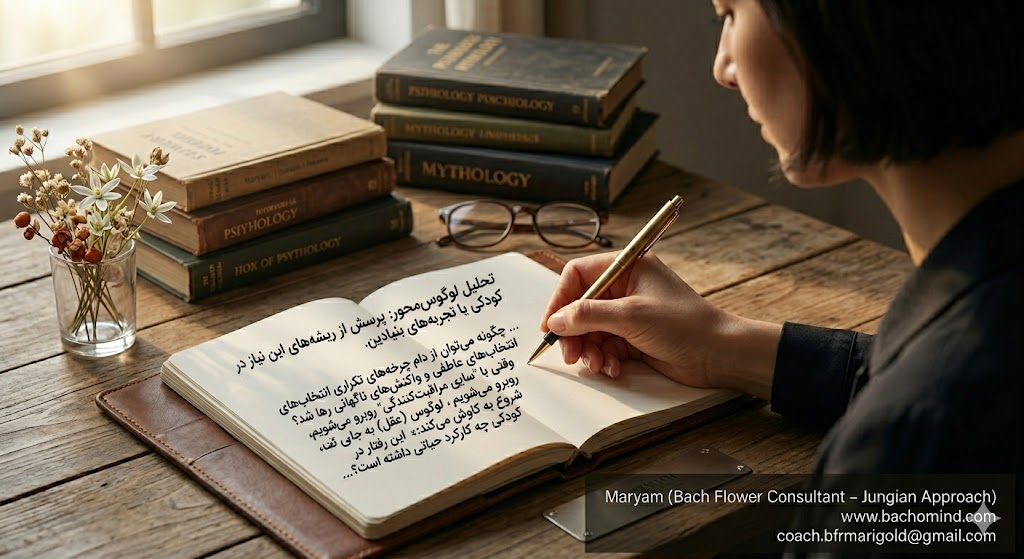 PSIHOLOGY PUNCHOLOGY
MYTHOLOGY
PSIYHOLOGY
HON OF PSYTHOLOGY
تحلیل لوگوس‌محور: پرسش از ریشه‌های این نیاز در
کودکی یا تجربه‌های بنیادین.
... چگونه می‌توان از دام چرخه‌های تکراری انتخاب‌های
انتخاب‌های عاطفی و واکنش‌های ناگهانی رها شد؟
وقتی با "سایهٔ مراقبت‌کنندگی" روبرو می‌شویم،
روبرو می‌شویم، لوگوس (عقل) به جای
شروع به کاوش می‌کند: این رفتار در
کودکی چه کارکرد حیاتی داشته است؟...
Maryam (Bach Flower Consultant – Jungian Approach)
www.bachomind.com
coach.bfrmarigold@gmail.com